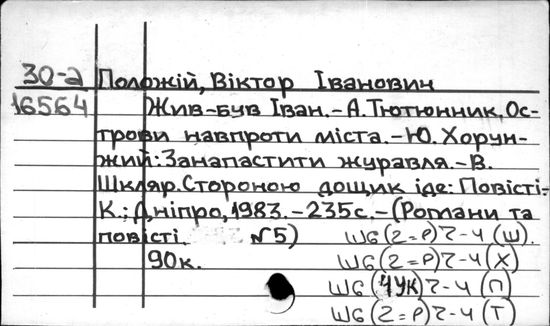 30-2 Положій, Віктор Іванович
16564 Жив-був Іван.-А.Тютюнник. Ос-
трови навпроти міста.-Ю.Хорун-
жий:Занапастити журавля.-В.
Шкляр.Стороною дощик іде:Повісті-
К.;Дніпро,1983.-235с.-(Романи та
повісті. №5)
90к.
Ш6(2=Р)7-4(Ш).
Ш6(2=Р)7-4(Х)
Ш6(4УК)7-4(П)
Ш6(2=Р)7-4(Т)